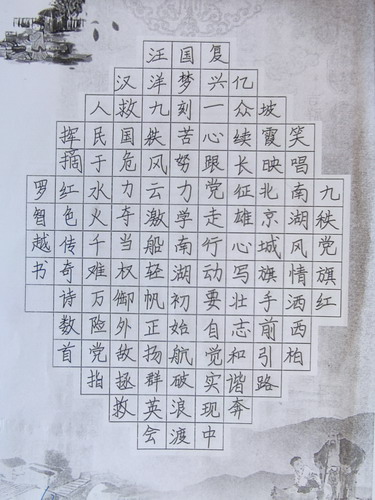 九秩党旗红
笑唱南湖风情洒西柏
坡霞映北京城旗手前引路
亿众续长征雄心写壮志和谐奔
复兴一心跟党走行动要自觉实现中
国梦刻苦努力学南湖初始航破浪渡
汪洋九秩风云激船轻帆正扬群英会
汉救国危力夺当权御外敌拯救
人民于水火千难万险党拍
挥摘红色传奇诗数首
罗智越书